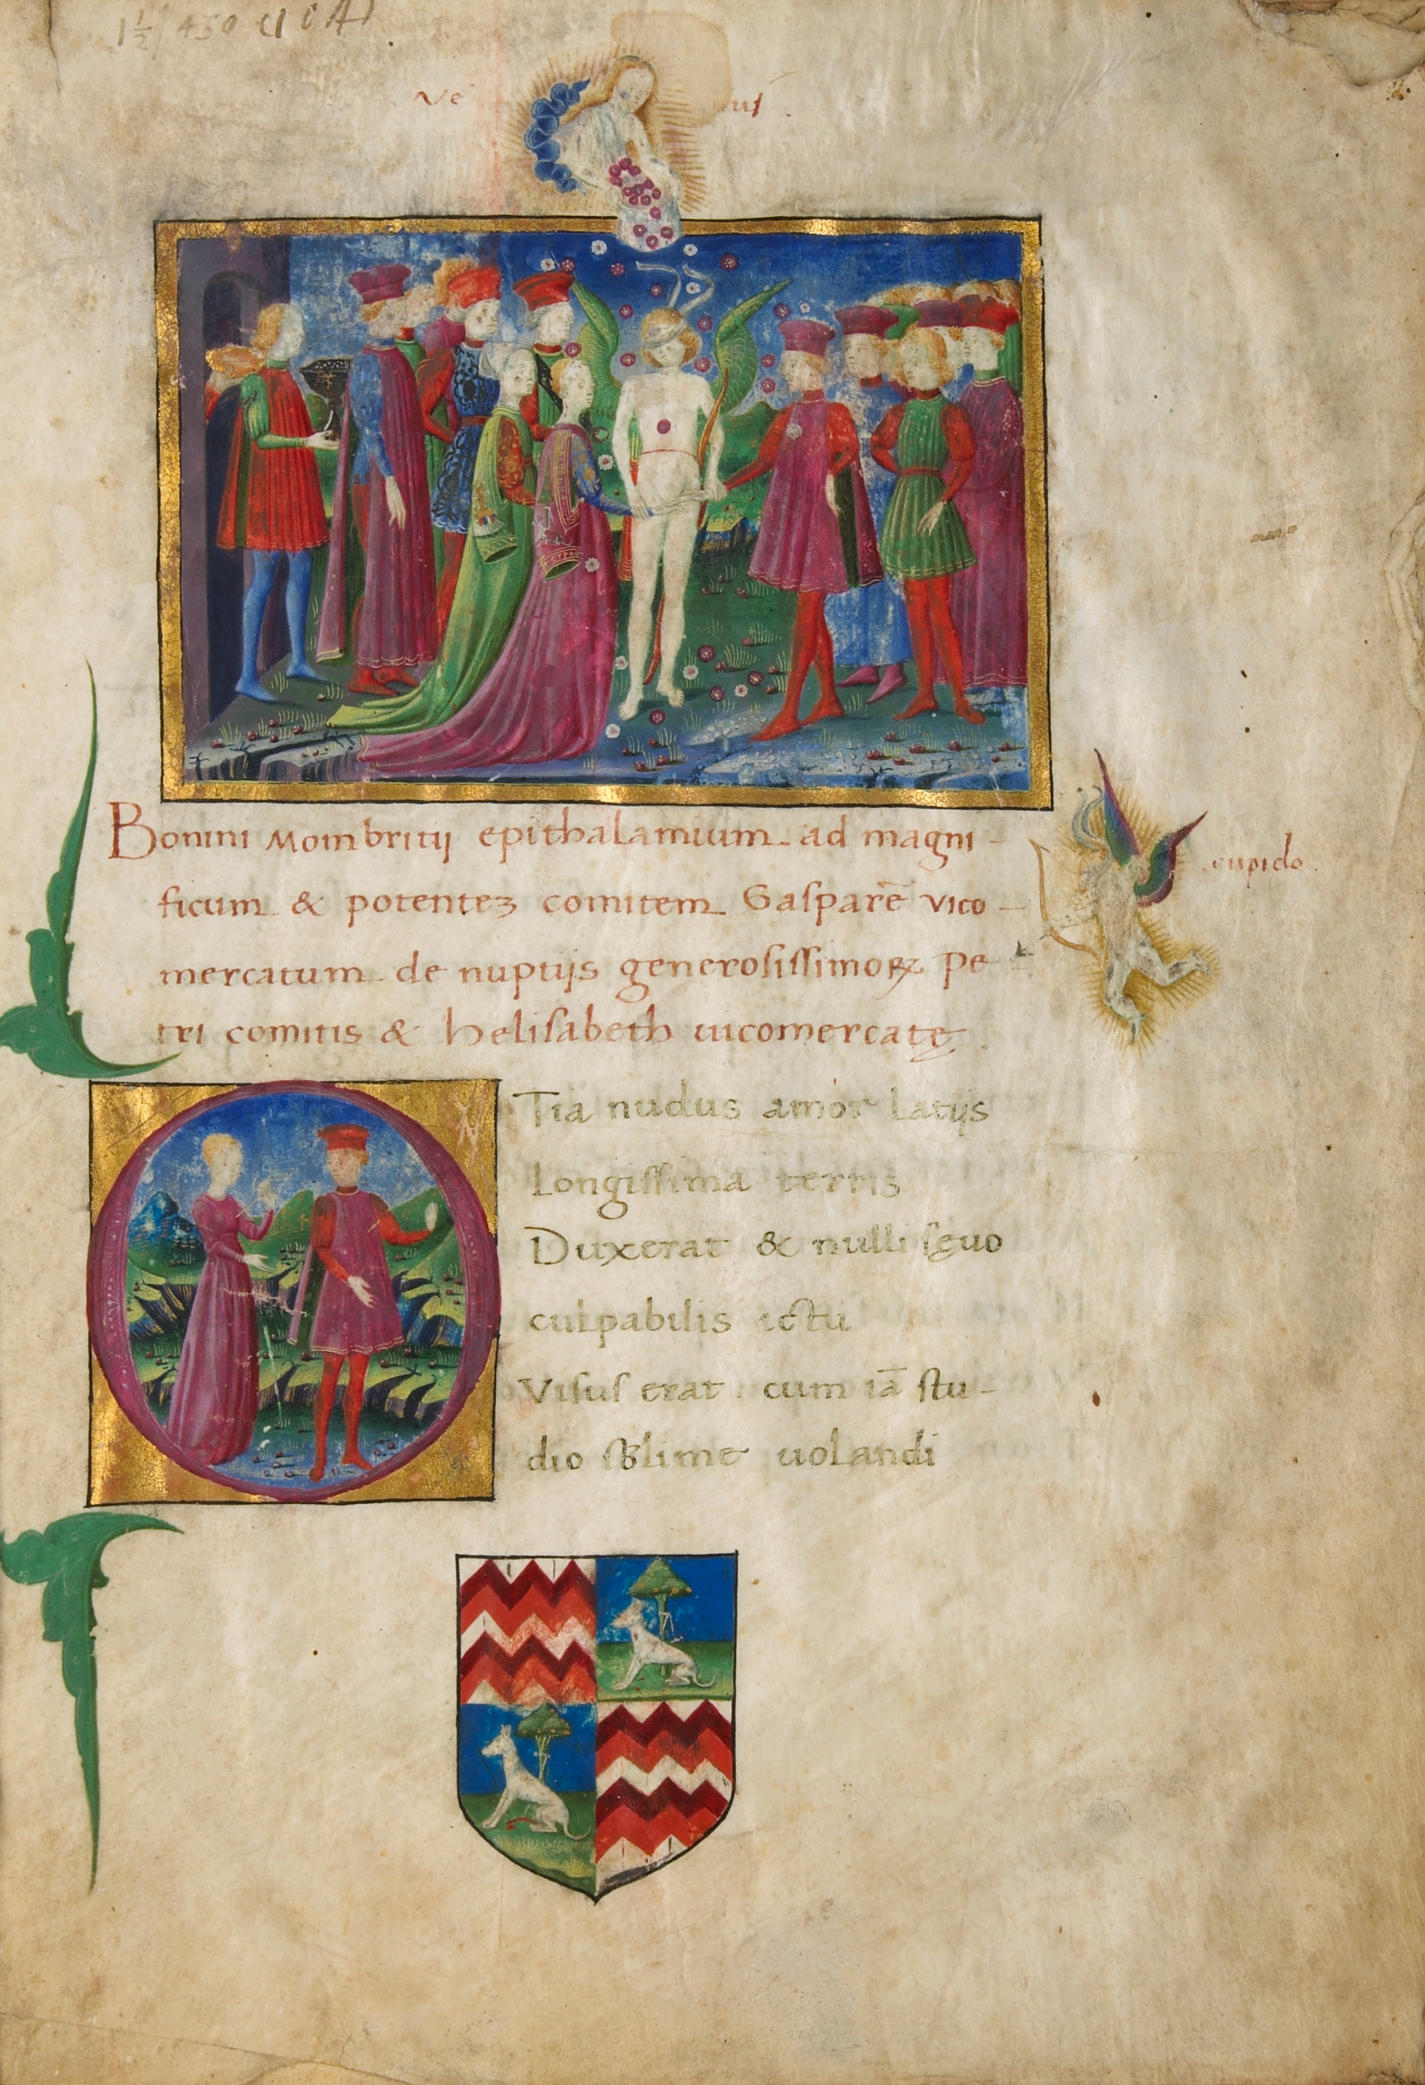 1 1/2 / 450
Ve nus
2.
Bonini Mombritij epithalamium ad magni-
ficum & potenteʒ comitem Gasparē vico-
mercatum de nuptijs generosissimoꝝ pe-
tri comitis & helisabeth uicomercatę.
cupido.
OTia nudus amor latijs
longissima terris
Duxerat & nulli sęuo
culpabilis ictu
Visus erat cum iā stu-
dio sublime uolandi